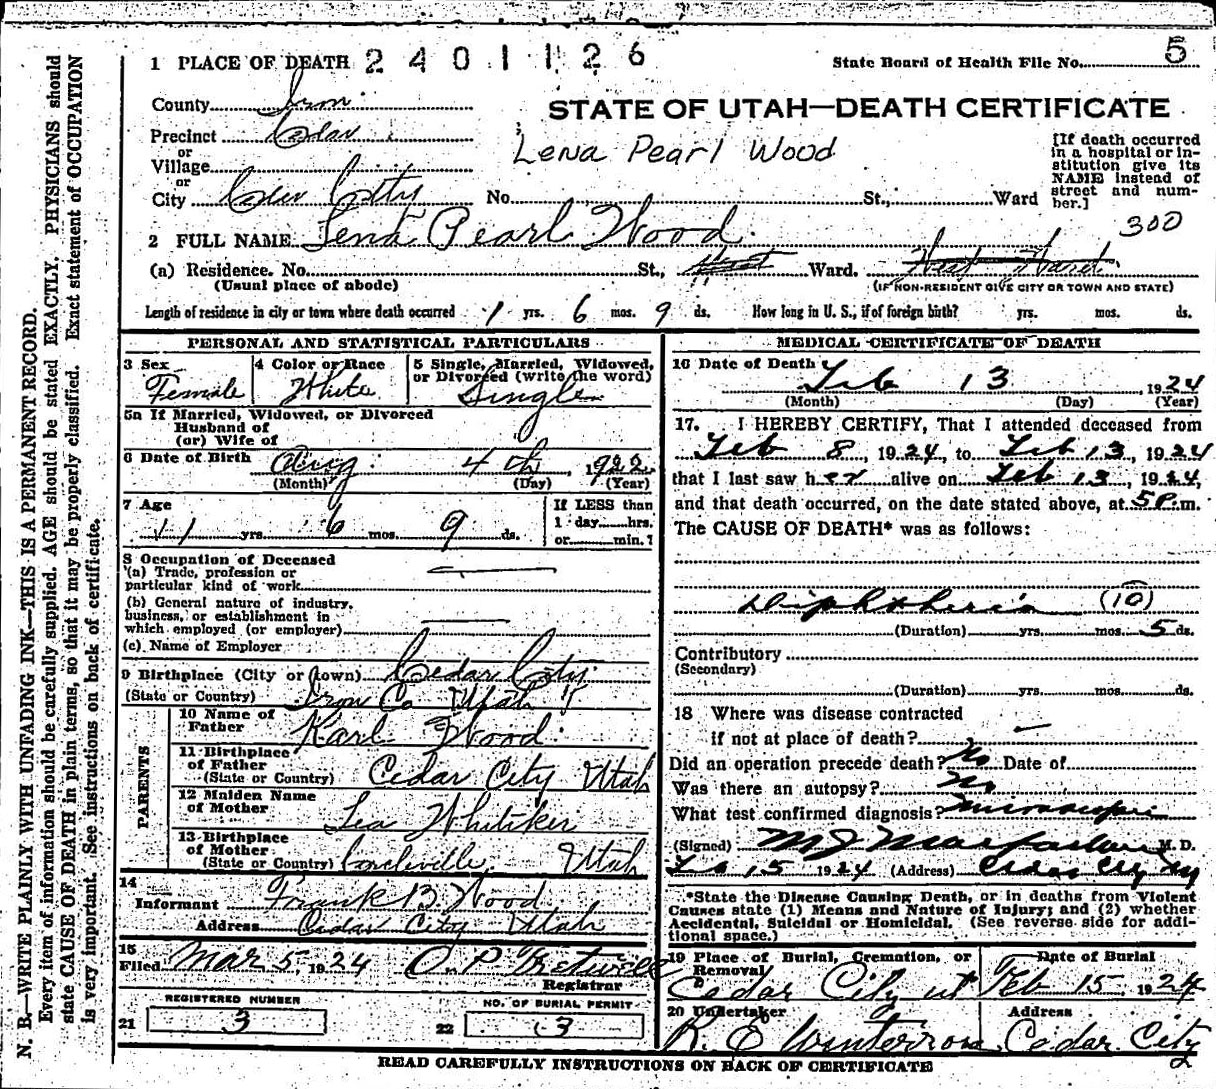 1 PLACE OF DEATH 2 4 0 1 1 2 6
State Board of Health File No. 5
County Iron
STATE OF UTAH—DEATH CERTIFICATE
Precinct Cedar
or
Village
or
City Cedar City
Lena Pearl Wood
[If death occurred
in a hospital or in-
stitution give its
NAME instead of
street and num-
ber.]
No. St., Ward
300
2 FULL NAME Lena Pearl Wood
(a) Residence. No. St., West Ward. West Ward
(Usual place of abode) (IF NON-RESIDENT GIVE CITY OR TOWN AND STATE)
Length of residence in city or town where death occurred 1 yrs. 6 mos. 9 ds. How long in U. S., if of foreign birth? yrs. mos. ds.
PERSONAL AND STATISTICAL PARTICULARS
3 Sex
Female
4 Color or Race
White
5 Single, Married, Widowed,
or Divorced (write the word)
Single
5a If Married, Widowed, or Divorced
Husband of
(or) Wife of
6 Date of Birth Aug. 4th, 1922
(Month) (Day) (Year)
7 Age
1 yrs. 6 mos. 9 ds.
If LESS than
1 day hrs.
or min.?
8 Occupation of Deceased
(a) Trade, profession or
particular kind of work
(b) General nature of industry,
business, or establishment in
which employed (or employer)
(c) Name of Employer
9 Birthplace (City or town) Cedar City
(State or Country) Iron Co Utah
PARENTS
10 Name of
Father Karl Wood
11 Birthplace
of Father
(State or Country) Cedar City Utah
12 Maiden Name
of Mother Lea Whitiker
13 Birthplace
of Mother
(State or Country) Utah
14
Informant Frank B. Wood
Address Cedar City Utah
15
Filed Mar 5, 1924 O. P.
Registrar
REGISTERED NUMBER
21 3
NO. OF BURIAL PERMIT
22 13
MEDICAL CERTIFICATE OF DEATH
16 Date of Death
Feb 13 1924
(Month) (Day) (Year)
17. I HEREBY CERTIFY, That I attended deceased from
Feb 8, 1924, to Feb 13, 1924
that I last saw her alive on Feb 13, 1924,
and that death occurred, on the date stated above, at 5 P.m.
The CAUSE OF DEATH* was as follows:
Diphtheria (10)
(Duration) yrs. mos. 5 ds.
Contributory
(Secondary)
(Duration) yrs. mos. ds.
18 Where was disease contracted
if not at place of death? —
Did an operation precede death? No Date of
Was there an autopsy? No
What test confirmed diagnosis? microscopic
(Signed) M J Macfarlane M. D.
Feb 15 1924 (Address) Cedar City
*State the Disease Causing Death, or in deaths from Violent
Causes state (1) Means and Nature of Injury; and (2) whether
Accidental, Suicidal or Homicidal. (See reverse side for addi-
tional space.)
19 Place of Burial, Cremation, or
Removal
Cedar City ut
Date of Burial
Feb 15, 1924
20 Undertaker
R. E Winterrose
Address
Cedar City
READ CAREFULLY INSTRUCTIONS ON BACK OF CERTIFICATE
N. B.—WRITE PLAINLY WITH UNFADING INK—THIS IS A PERMANENT RECORD.
Every item of information should be carefully supplied. AGE should be stated EXACTLY. PHYSICIANS should
state CAUSE OF DEATH in plain terms, so that it may be properly classified. Exact statement of OCCUPATION
is very important. See instructions on back of certificate.